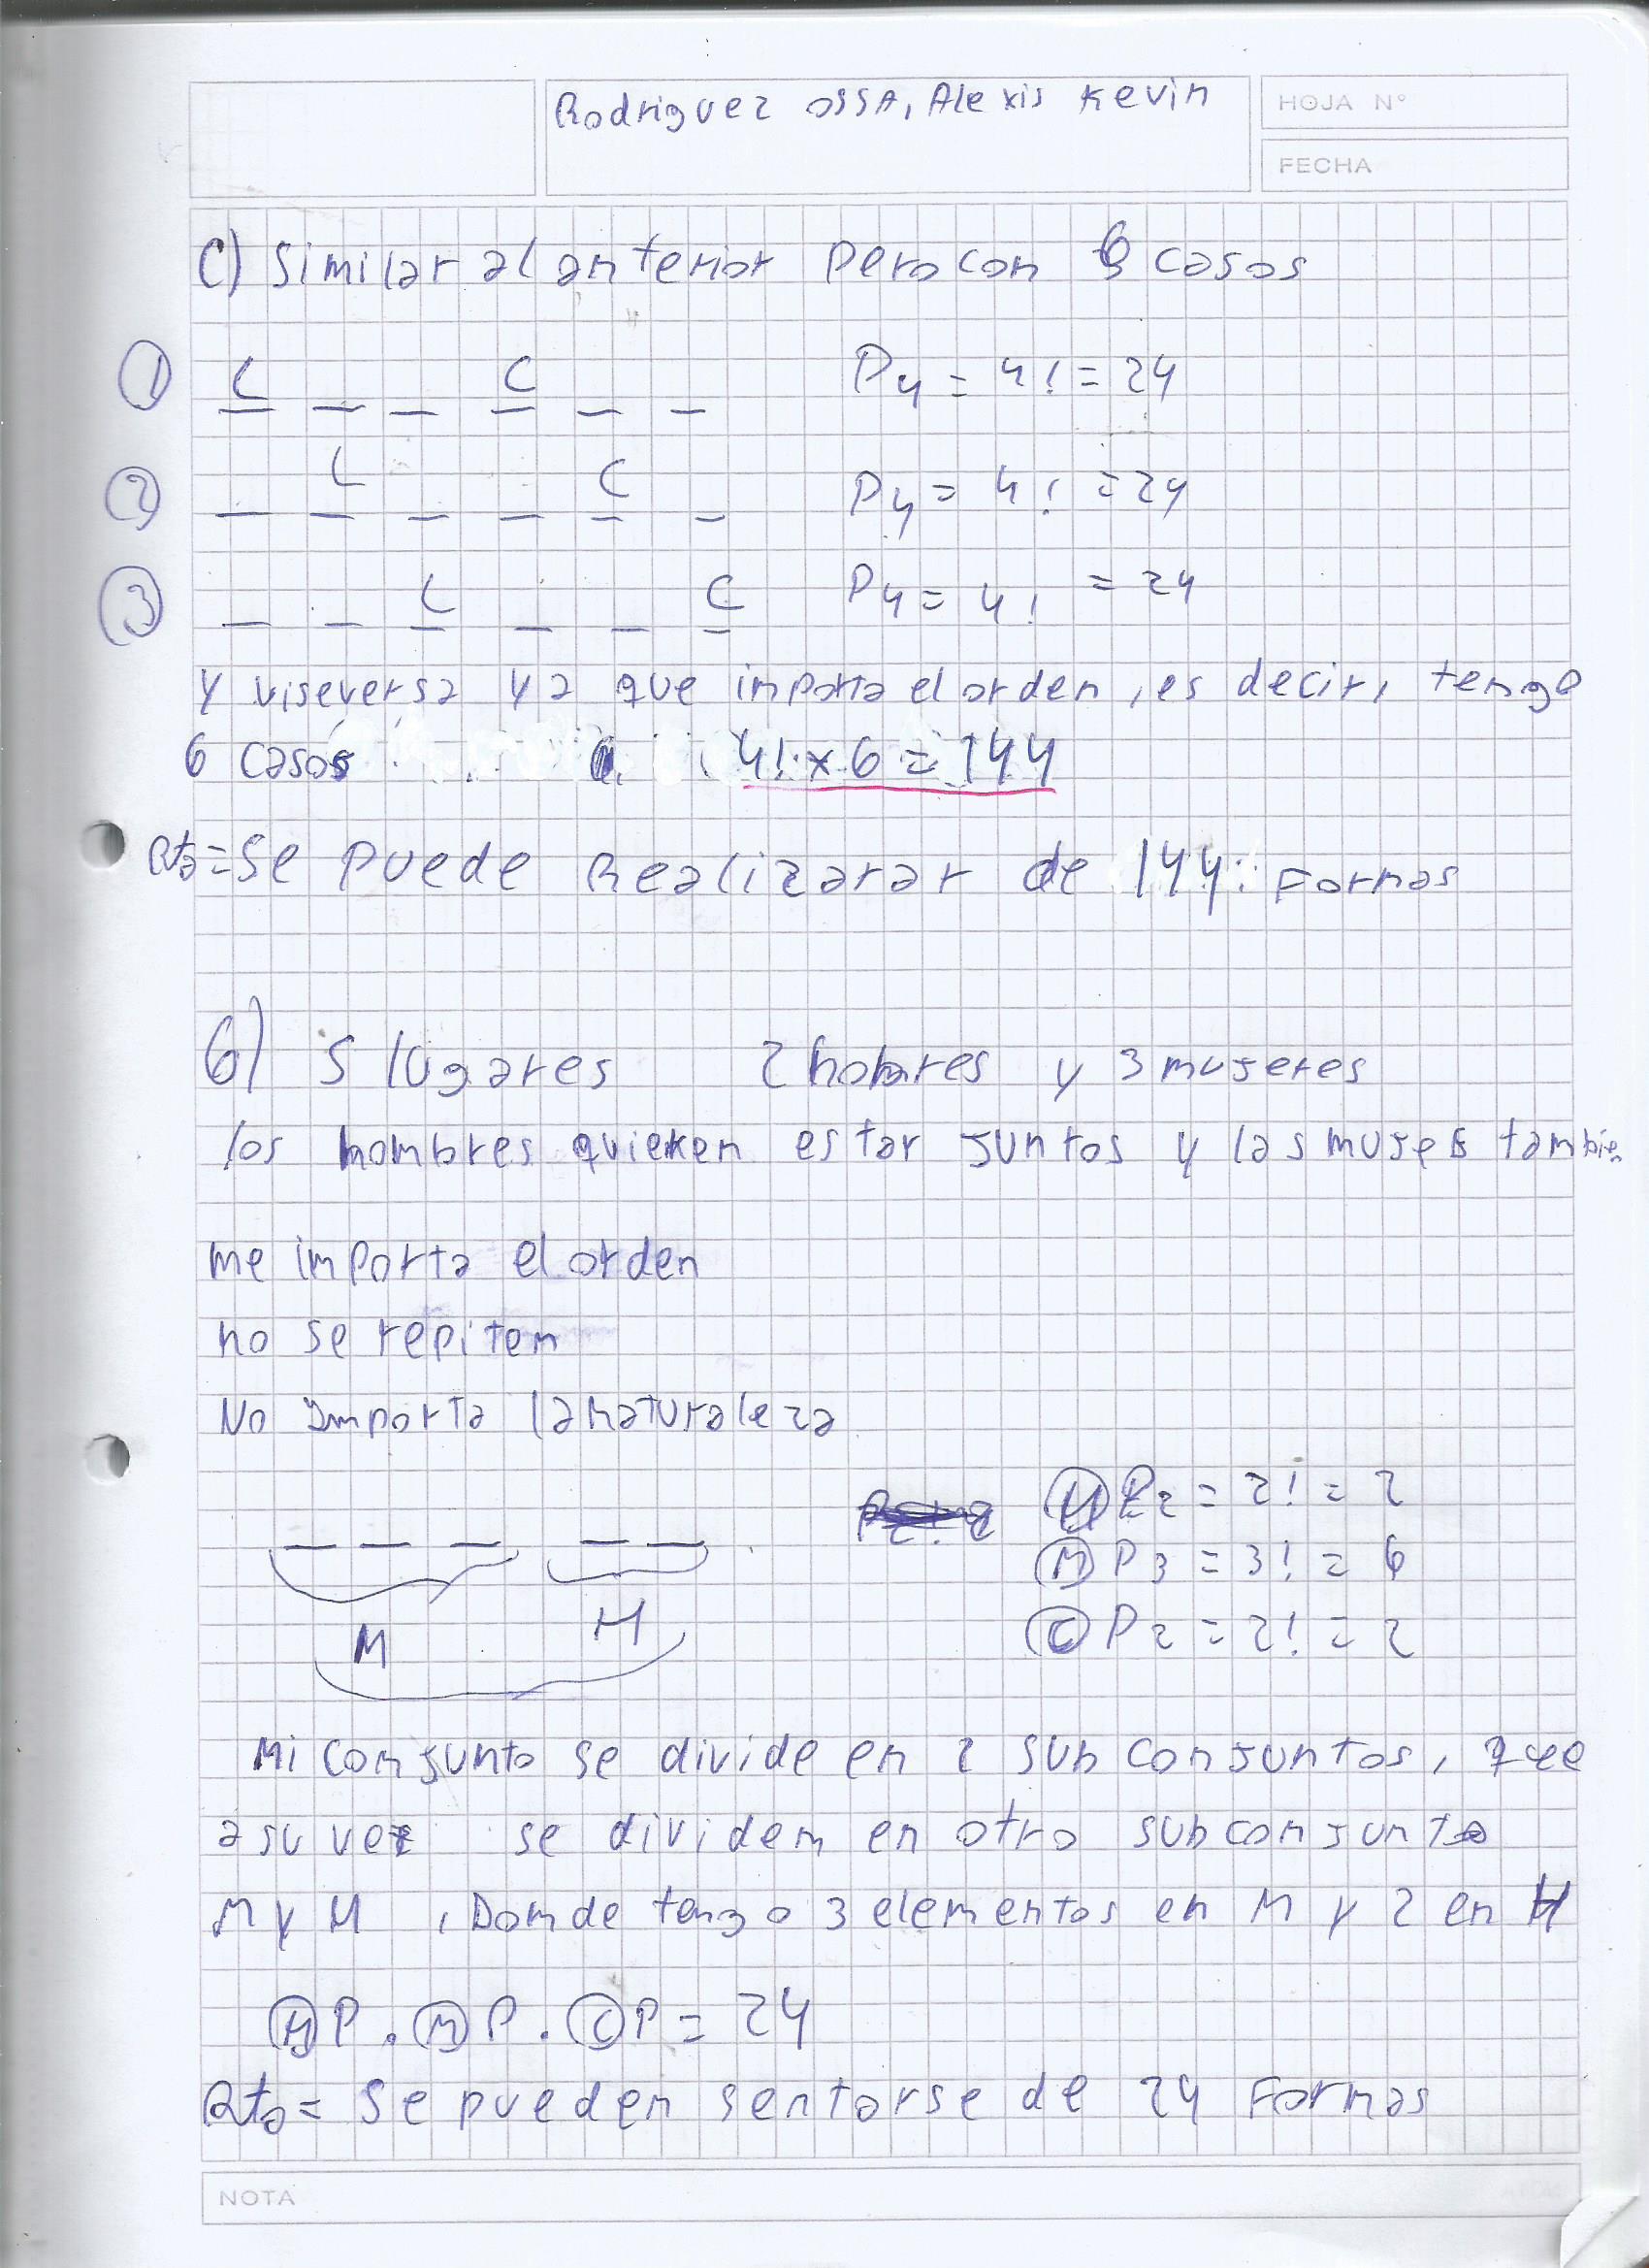 Rodriguez OSSA, Alexis Kevin
HOJA N°
FECHA
C) Similar al anterior pero con 6 casos
① C _ _ C _ _ P4 = 4! = 24
② _ C _ _ C _ P4 = 4! = 24
③ _ _ C _ _ C P4 = 4! = 24
y viseversa ya que importa el orden, es decir, tengo
6 casos 4! x 6 = 144
Rta = Se puede Realizarar de 144 Formas
6) 5 lugares 2 hombres y 3 mujeres
los hombres quieren estar juntos y las mujes tambien
me importa el orden
no se repiten
No Importa la naturaleza
Ⓗ P2 = 2! = 2
Ⓜ P3 = 3! = 6
Ⓒ P2 = 2! = 2
M H
Mi conjunto se divide en 2 sub conjuntos, que
a su vez se dividem en otro subconjunto
M y H, Domde tengo 3 elementos en M y 2 en H
Ⓗ P . Ⓜ P . Ⓒ P = 24
Rta = Se pueden sentarse de 24 Formas
NOTA